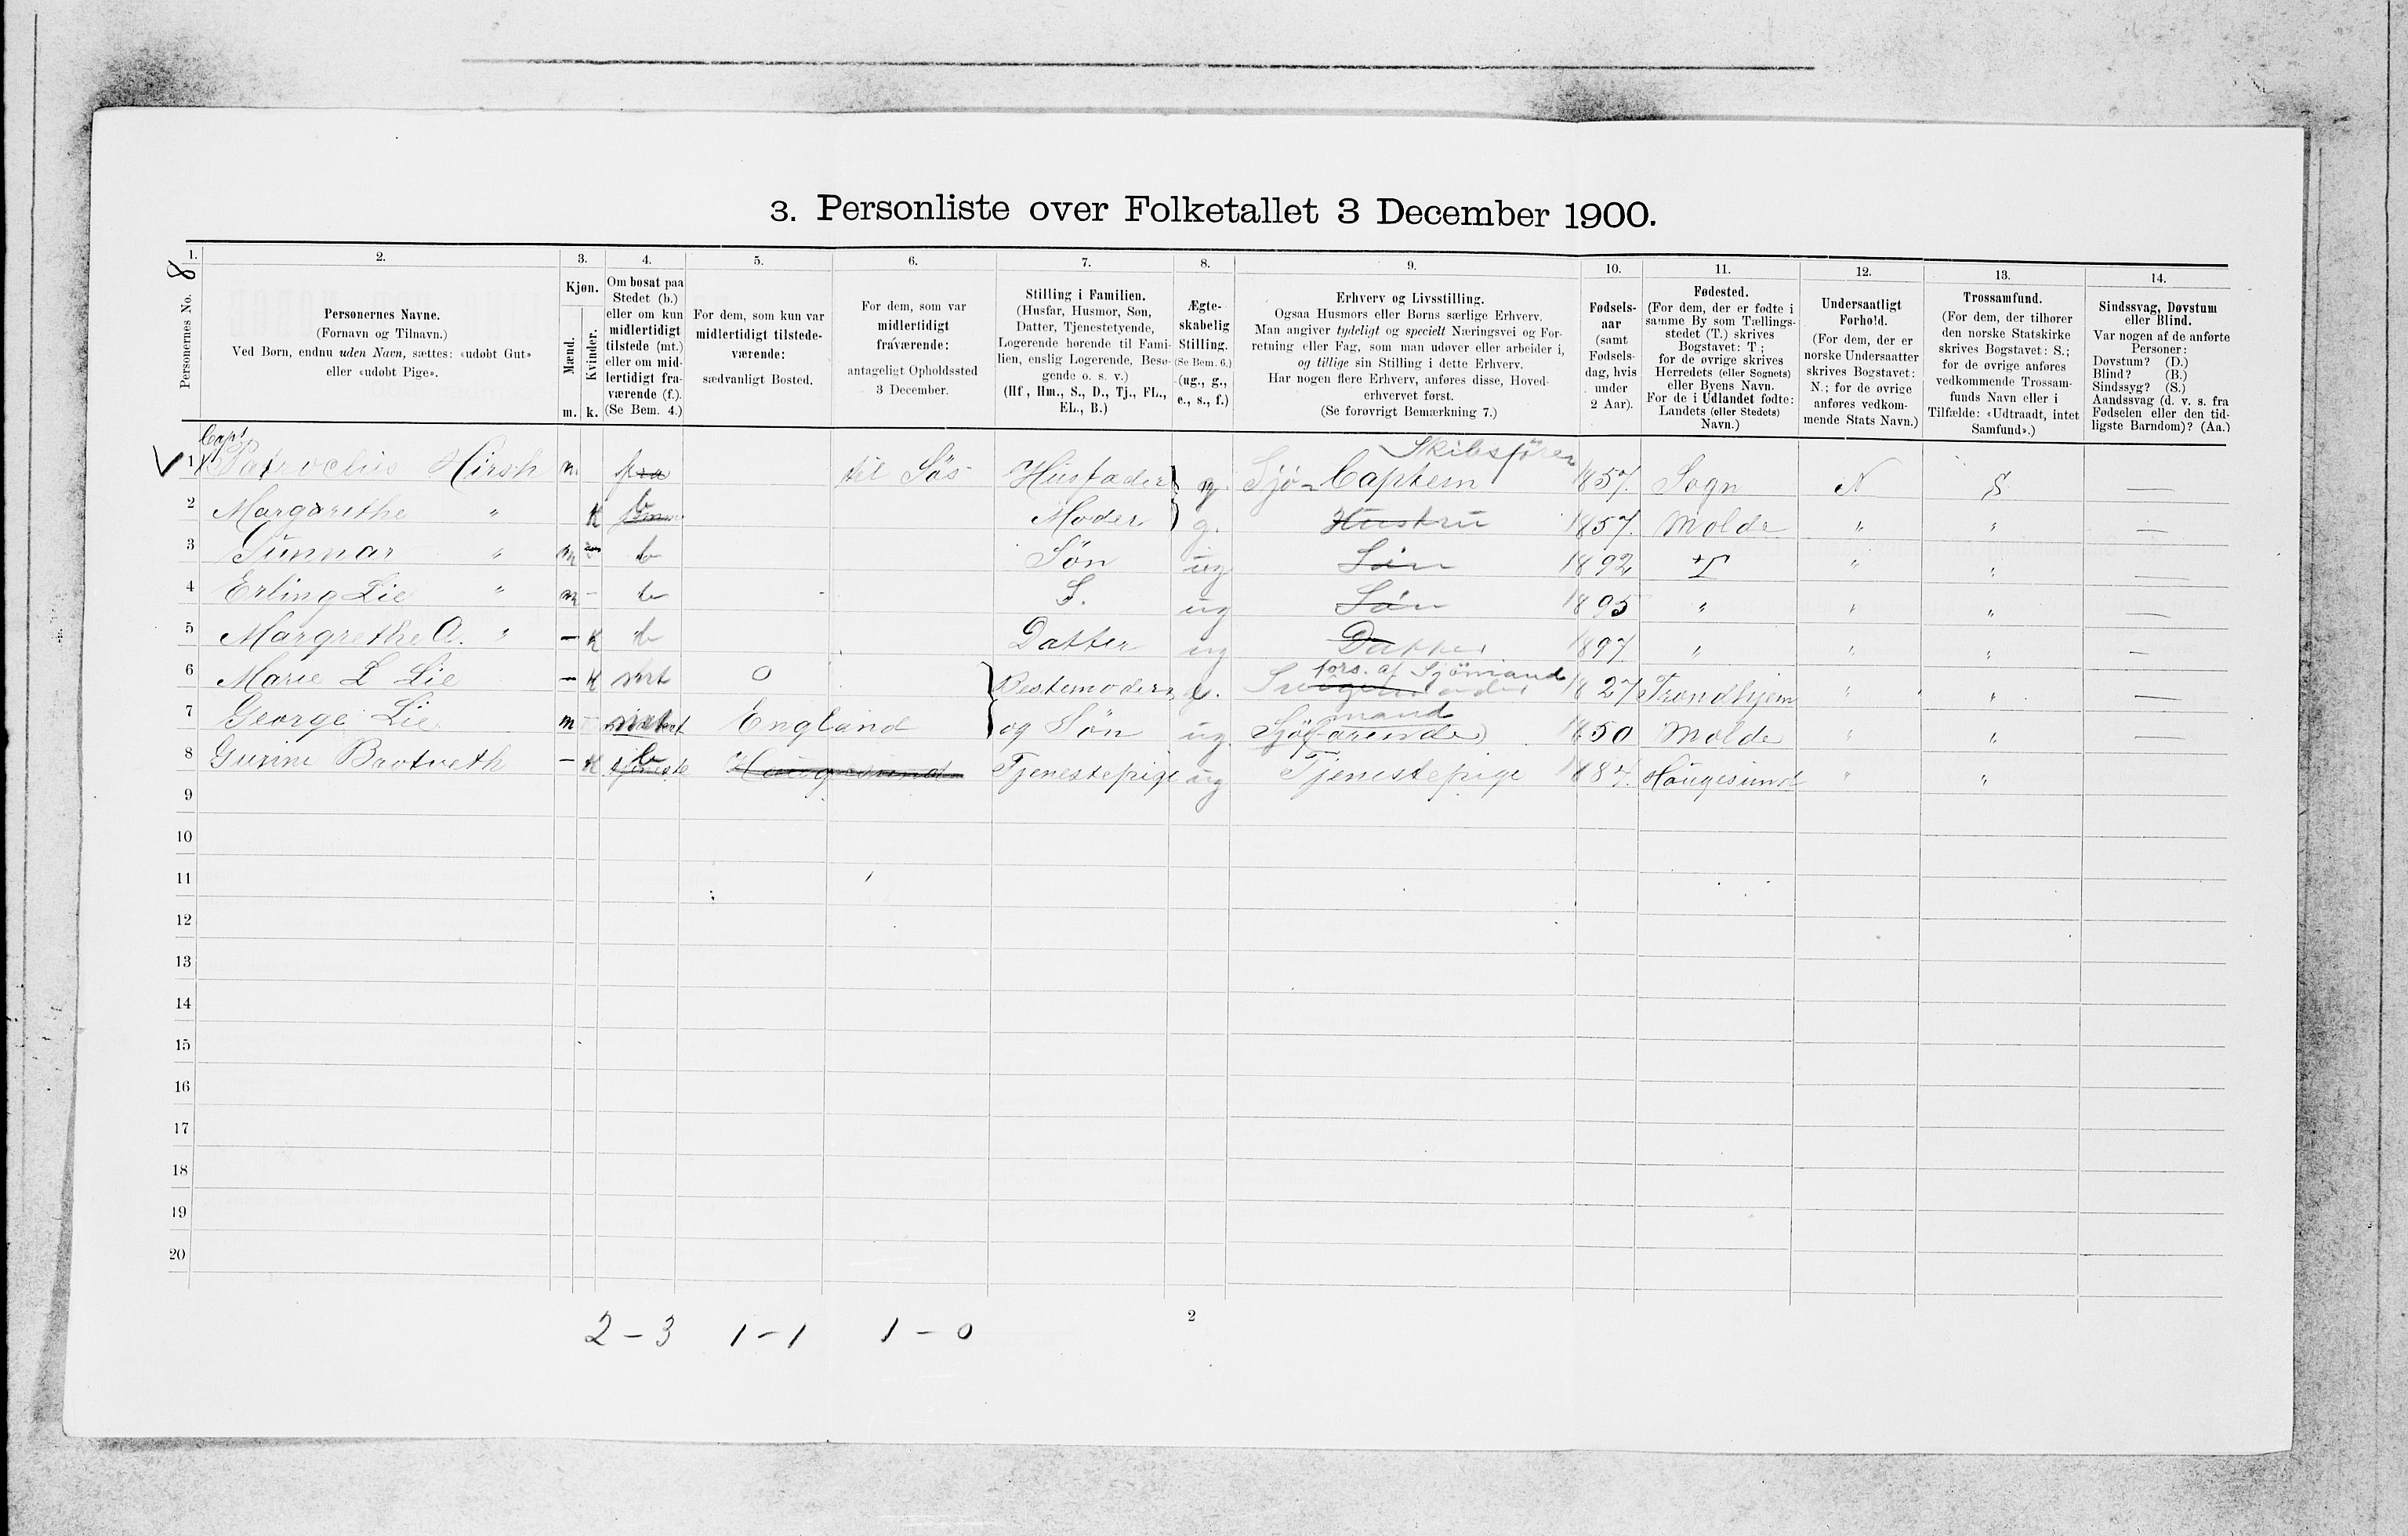 3. Personliste over Folketallet 3 December 1900.
1. 2. 3. 4. 5. 6. 7. 8. 9. 10. 11. 12. 13. 14.
8
Personernes No.
Personernes Navne.
(Fornavn og Tilnavn.)
Ved Børn, endnu uden Navn, sættes: «udøbt Gut»
eller «udøbt Pige».
Kjøn.
Mænd. Kvinder.
m. k.
Om bosat paa
Stedet (b.)
eller om kun
midlertidigt
tilstede (mt.)
eller om mid-
lertidigt fra-
værende (f.).
(Se Bem. 4.)
For dem, som kun var
midlertidigt tilstede-
værende:
sædvanligt Bosted.
For dem, som var
midlertidigt
fraværende:
antageligt Opholdssted
3 December.
Stilling i Familien.
(Husfar, Husmor, Søn,
Datter, Tjenestetyende,
Logerende hørende til Fami-
lien, enslig Logerende, Besø-
gende o. s. v.)
(Hf., Hm., S., D., Tj., FL.,
EL., B.)
Ægte-
skabelig
Stilling.
(Se Bem. 6.)
(ug., g.,
e., s., f.)
Erhverv og Livsstilling.
Ogsaa Husmors eller Børns særlige Erhverv.
Man angiver tydeligt og specielt Næringsvei og For-
retning eller Fag, som man udøver eller arbeider i,
og tillige sin Stilling i dette Erhverv.
Har nogen flere Erhverv, anføres disse, Hoved-
erhvervet først.
(Se forøvrigt Bemærkning 7.)
Fødsels-
aar
(samt
Fødsels-
dag, hvis
under
2 Aar).
Fødested.
(For dem, der er fødte i
samme By som Tællings-
stedet (T.) skrives
Bogstavet: T.;
for de øvrige skrives
Herredets (eller Sognets)
eller Byens Navn.
For de i Udlandet fødte:
Landets (eller Stedets)
Navn.)
Undersaatligt
Forhold.
(For dem, der er
norske Undersaatter
skrives Bogstavet:
N.; for de øvrige
anføres vedkom-
mende Stats Navn.)
Trossamfund.
(For dem, der tilhører
den norske Statskirke
skrives Bogstavet: S.;
for de øvrige anføres
vedkommende Trossam-
funds Navn eller i
Tilfælde: «Udtraadt, intet
Samfund».)
Sindssvag, Døvstum
eller Blind.
Var nogen af de anførte
Personer:
Døvstum? (D.)
Blind? (B.)
Sindssyg? (S.)
Aandssvag (d. v. s. fra
Fødselen eller den tid-
ligste Barndom)? (Aa.)
Capt. Skibsfører
1 Patroclus Hirsh m til Søs Husfader g. Sjø-Captein 1857. Sogn N S —
2 Margarethe " K b Moder g. Hustru 1857. Molde " " —
3 Gunnar " m b Søn ug Søn 1892 T " " —
4 Erling Lie " m - b S. ug Søn 1895 " " " —
5 Margrethe A. " - K b Datter ug Datter 1897 " " " —
fors. af Sjømand
6 Marie L Lie - K mt 0 Bestemoder e. 1827 Trondhjem " " —
mand
7 George Lie m mt England og Søn ug Sjøfarende 1850 Molde " " —
8 Gurine Brotveth - K b Haugesund Tjenestepige ug Tjenestepige 188 Haugesund " "
9
10
11
12
13
14
15
16
17
18
19
20
2
2-3 1-1 1-0